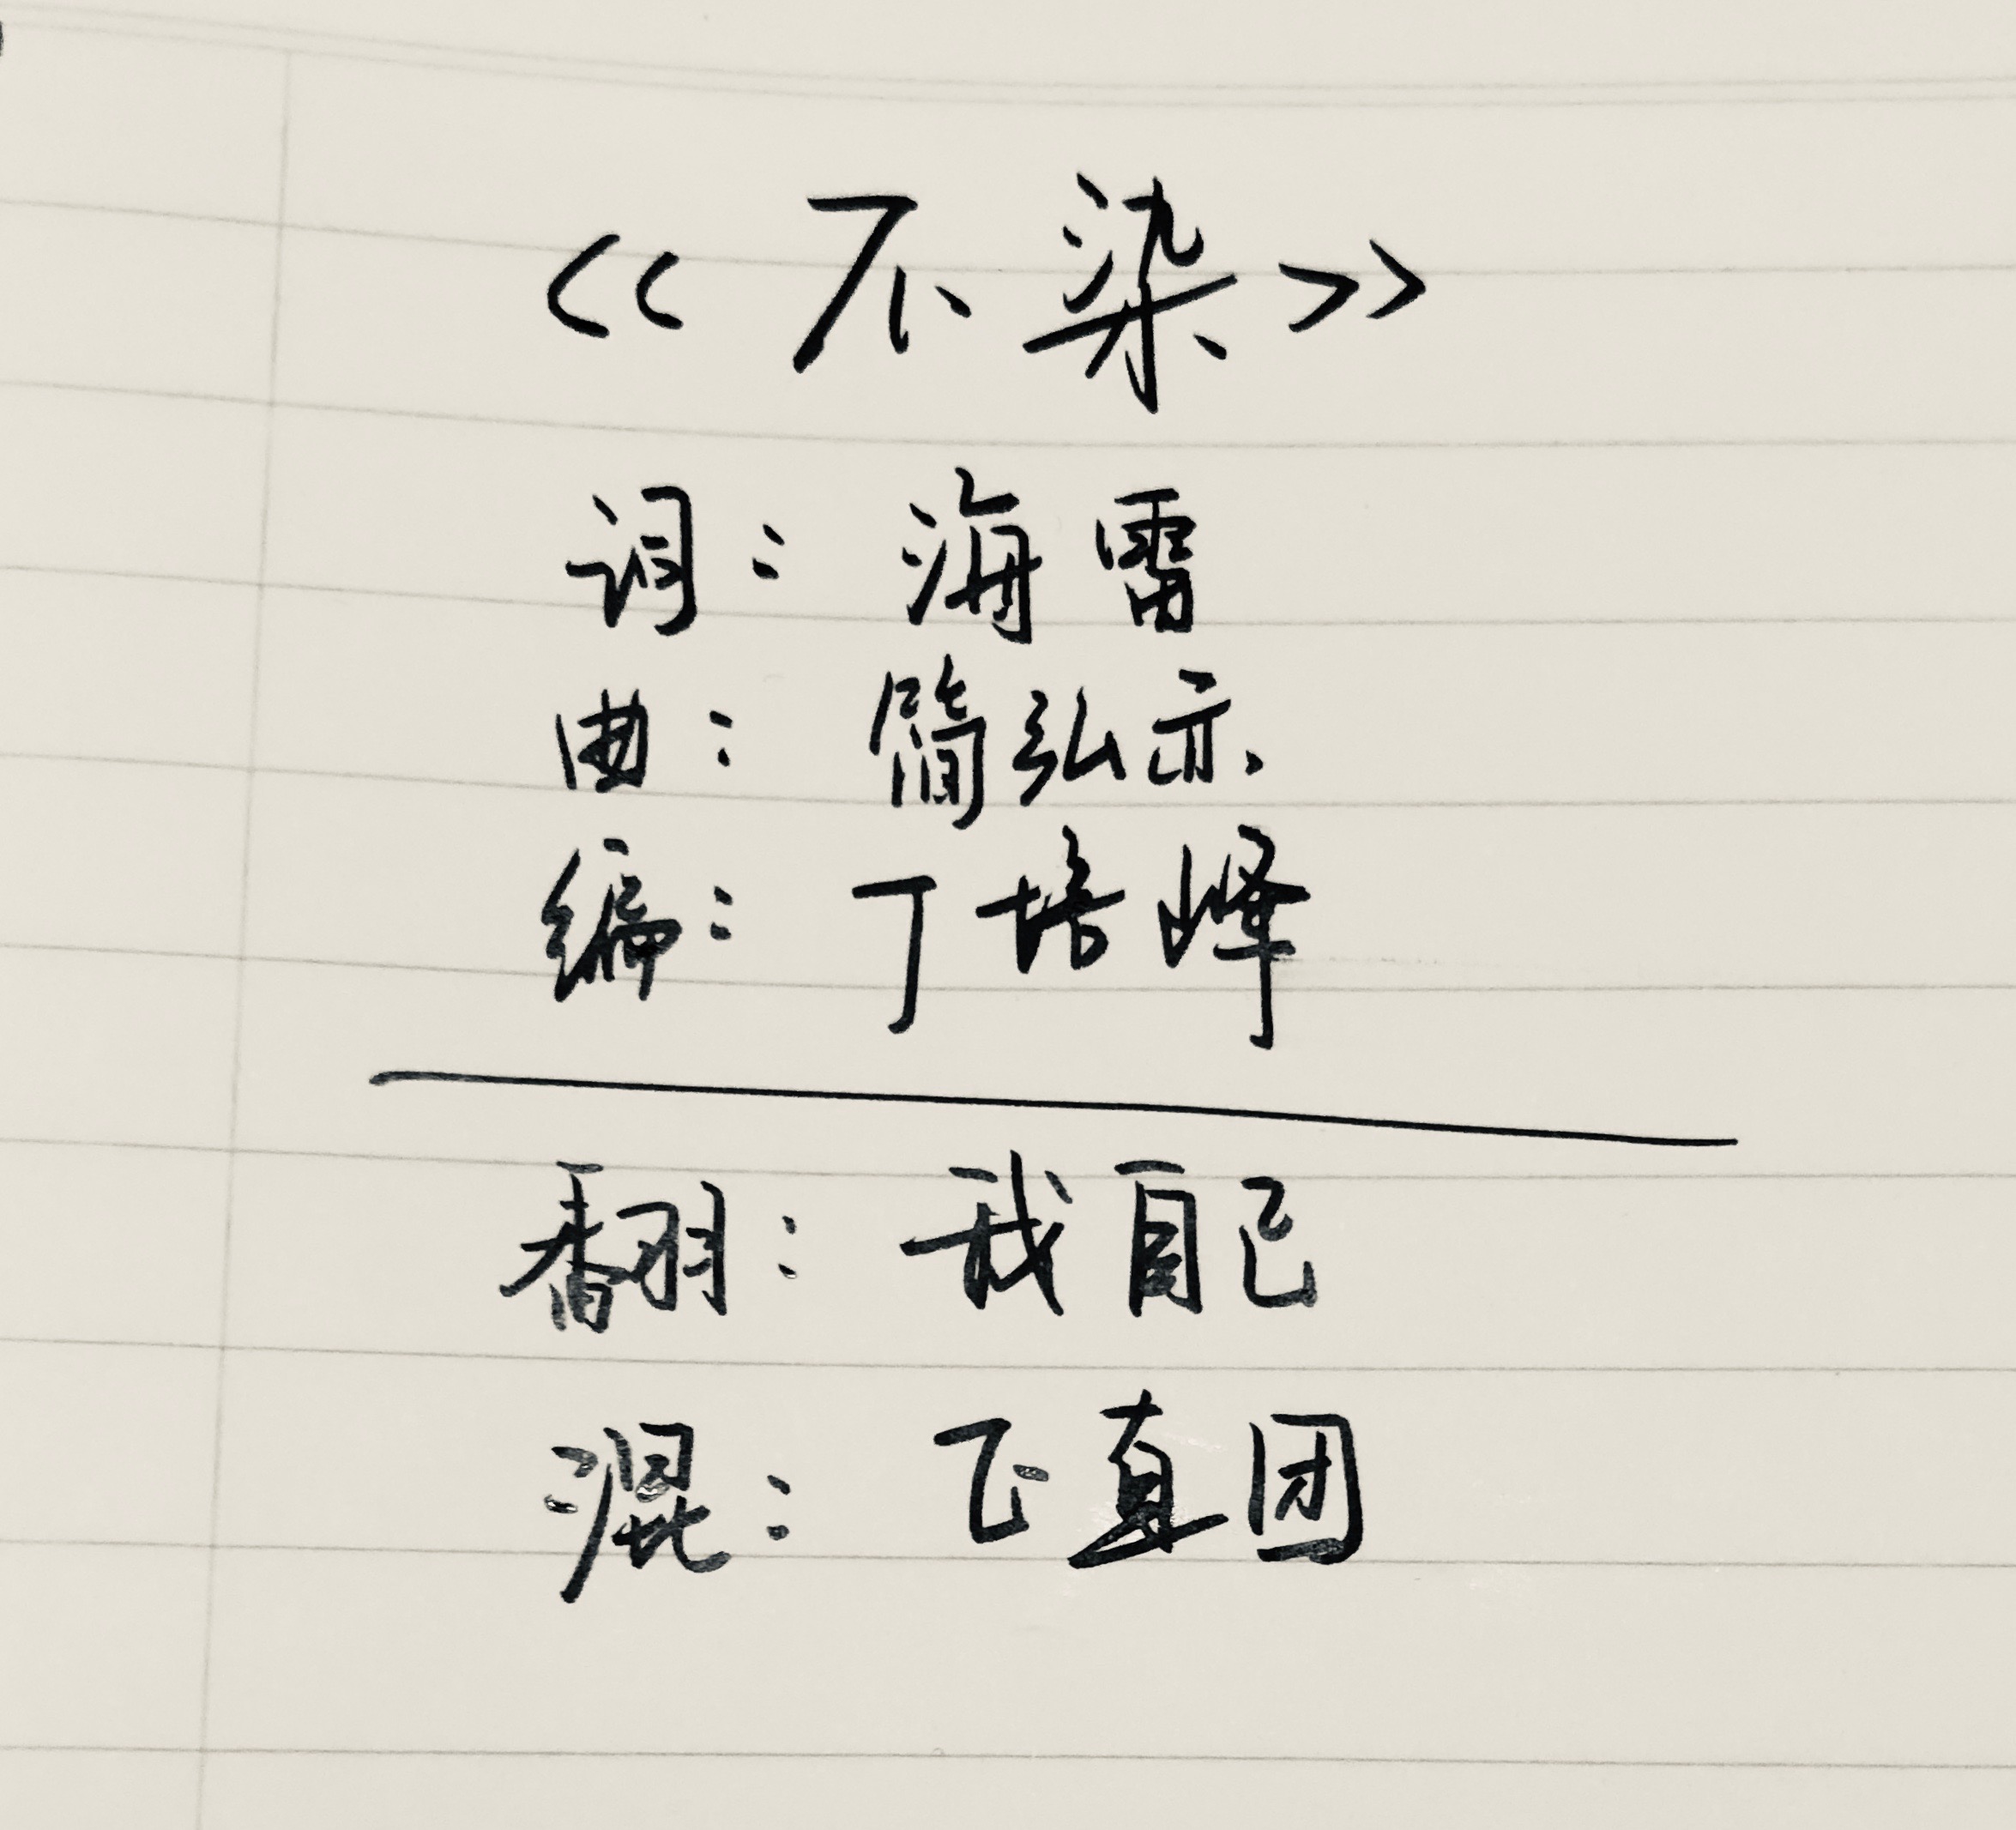 <<不染>>
词：海雷
曲：简弘亦
编：丁培峰
翻：我自己
混：飞真团